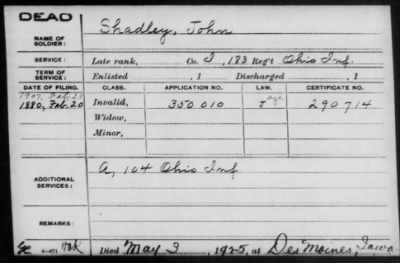 DEAD
NAME OF SOLDIER: Shadley, John
SERVICE: Late rank, Co. I, 183 Reg't Ohio Inf.
TERM OF SERVICE: Enlisted , 1 Discharged , 1
DATE OF FILING. CLASS. APPLICATION NO. LAW. CERTIFICATE NO.
1907, Feb. 23
1880, Feb. 20 Invalid, 350 010 290 714
Widow,
Minor,
ADDITIONAL SERVICES: A, 104 Ohio Inf
REMARKS:
Died May 3, 1925, at Des Moines, Iowa